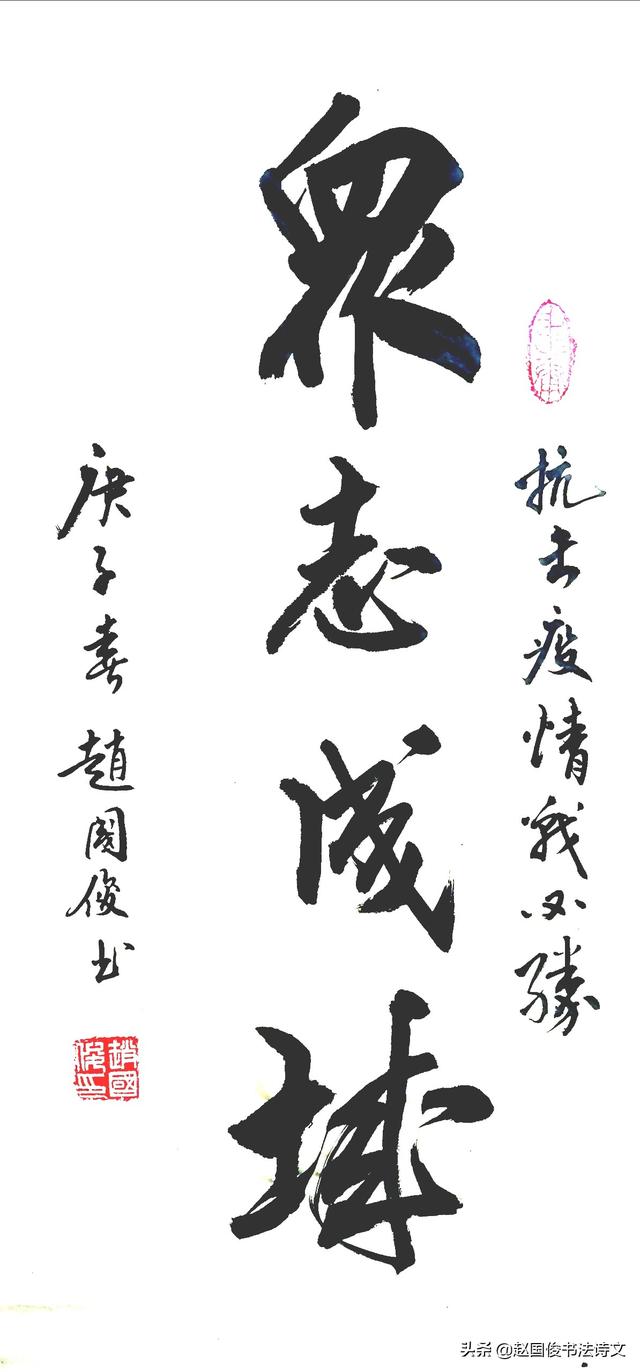 抗击疫情战必勝
衆志成城
庚子春趙國俊书
趙國俊印
头条 @赵国俊书法诗文